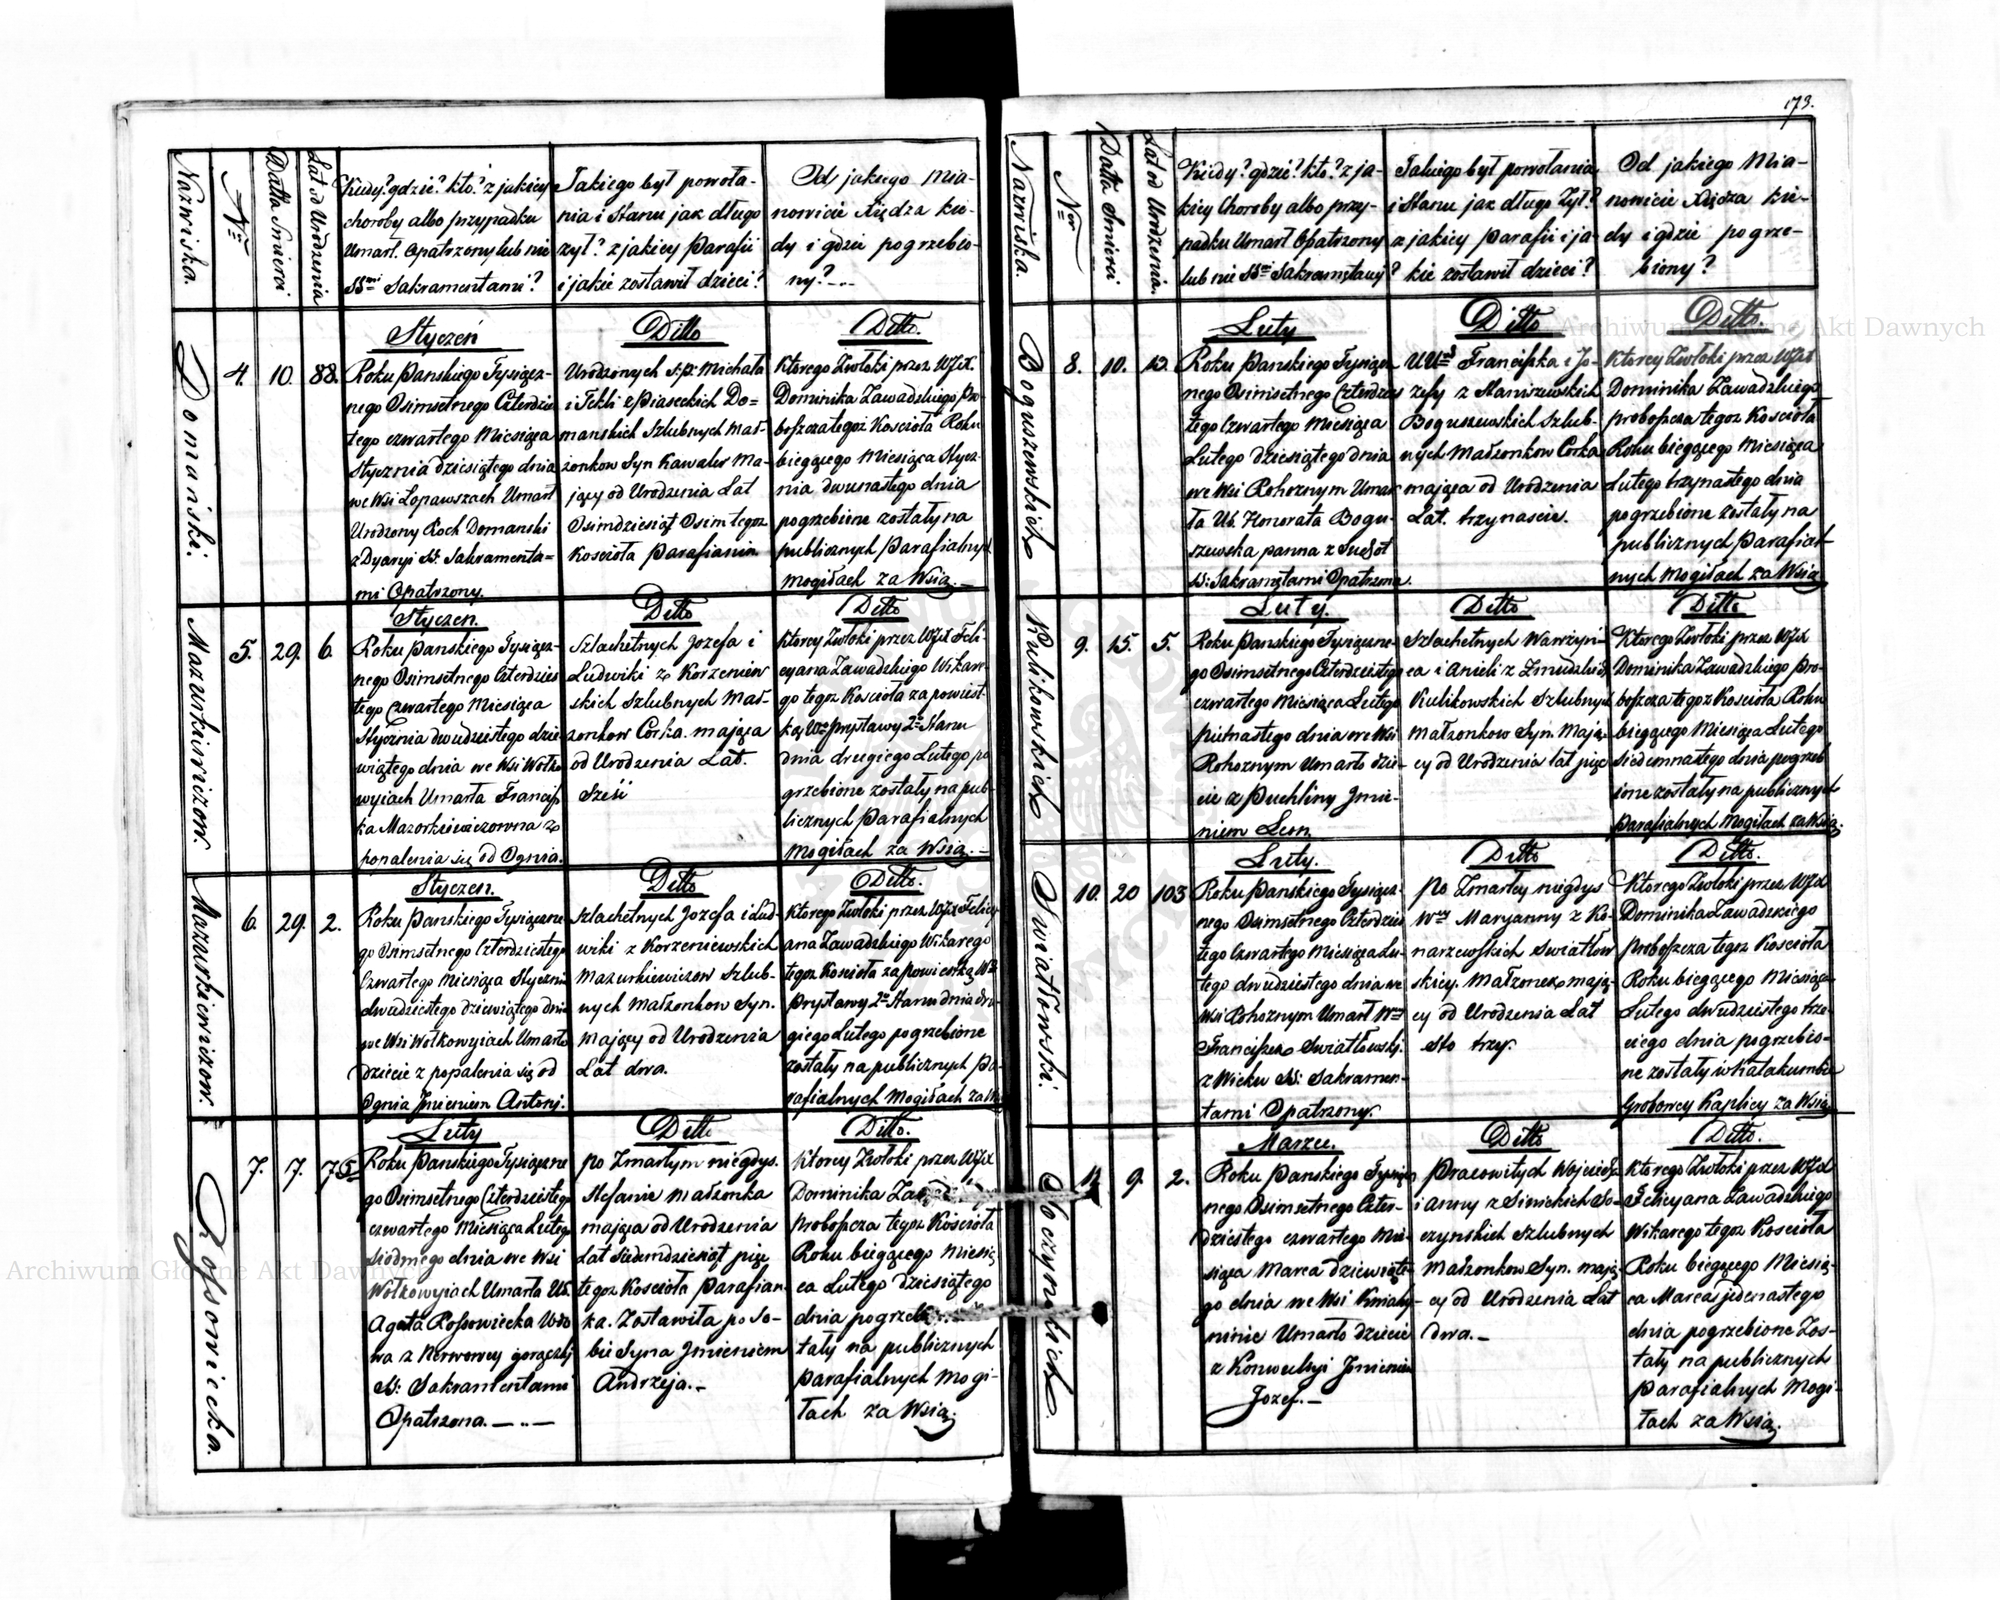 173.
Nazwiska.
Nr
Datta Smierci
Lat od Urodzenia
Kiedy? gdzie? kto? z jakiey
choroby albo przypadku
Umarł. Opatrzony lub nie
SSmi Sakramentami?
Jakiego był powoła-
nia i Stanu jak długo
żył? z jakiey Parafii
i jakie zostawił dzieci?
Od jakiego Mia-
nowicie Xiędza kie-
dy i gdzie pogrzebio-
ny?
Domański.
4.
10.
88.
Styczeń
Roku Panskiego Tysiącz-
nego Osimsetnego Czterdzies
tego czwartego Miesiąca
Stycznia dziesiątego dnia
we Wsi Łopawszach Umarł
Urodzony Roch Domanski
z Dyaryi SS. Sakramenta=
mi Opatrzony.
Ditto
Urodzonych s.p. Michała
i Tekli z Piaseckich Do=
manskich Szlubnych Mał-
żonkow Syn Kawaler Ma-
jący od Urodzenia Lat
Osimdziesiąt Osim tegoz
Kościoła Parafianin
Ditto.
Ktorego Zwłoki przez WJX.
Dominika Zawadzkiego Pro-
boszcza tegoż Kościoła Roku
bieżącego Miesiąca Stycz-
nia dwunastego dnia
pogrzebione zostały na
publicznych Parafialnych
mogiłach za Wsią.
Mazurkiewiczow.
5.
29.
6.
Styczen.
Roku Panskiego Tysiącz-
nego Osimsetnego Czterdzies
tego Czwartego Miesiąca
Stycznia dwudziestego dzie-
wiątego dnia we Wsi Wołko-
wyiach Umarła Francisz
ka Mazorkiewiczowna z
popalenia się od Ognia.
Ditto
Szlachetnych Jozefa i
Ludwiki z Korzeniew
skich Szlubnych Mał-
zonkow Córka. mająca
od Urodzenia Lat.
Sześć
Ditto
Ktorey Zwłoki przez WJX Feli-
cyana Zawadzkiego Wikare-
go tegoz Kościoła za powiest-
ką Wo Prystawy 2o Stanu
dnia drugiego Lutego po
grzebione zostały na pub-
licznych Parafialnych
Mogiłach za Wsią.
Mazurkiewiczow.
6.
29.
2.
Styczen.
Roku Panskiego Tysiączne
go Osimsetnego Czterdziestego
Czwartego Miesiąca Stycznia
dwudziestego dziewiątego dnia
we Wsi Wołkowyiach Umarło
Dziecie z popalenia się od
Ognia Jmieniem Antoni.
Ditto
Szlachetnych Jozefa i Lud-
wiki z Korzeniewskich
Mazurkiewiczow Szlub-
nych Małzonkow Syn.
Mający od Urodzenia
Lat dwa.
Ditto.
Ktorego Zwłoki przez WJX Felicy-
ana Zawadzkiego Wikarego
tegoz Kościoła za powiestką Wo
Prystawy 2o Stanu dnia dru-
giego Lutego pogrzebione
zostały na publicznych Pa-
rafialnych Mogiłach za Wsią
Rossowiecka.
7.
7.
75
Luty
Roku Panskiego Tysiączne
go Osimsetnego Czterdziestego
czwartego Miesiąca Lutego
siodmego dnia we Wsi
Wołkowyiach Umarła Ur.
Agata Rossowiecka Wdo
wa z Nerwowey gorączki
SS: Sakramentami
Opatrzona.
Ditto
po Zmarłym niegdys.
Stefanie małzonka
mająca od Urodzenia
Lat siedemdziesiąt pięć
tegoz Kościoła Parafian-
ka. Zostawiła po so-
bie Syna Jmieniem
Andrzeja.
Ditto.
Ktorey Zwłoki przez WJX
Dominika
Proboszcza tegoz Kościoła
Roku bieżącego Miesią
ca Lutego dziesiątego
dnia pogrzeb
tały na publicznych
Parafialnych Mogi-
łach za Wsią.
Nazwiska.
Nor
Datta Smierci
Lat od Urodzenia.
Kiedy? gdzie? kto? z ja-
kiey Choroby albo przy-
padku Umarł Opatrzony
lub nie SSmi Sakramentamy?
Jakiego był powołania
i Stanu jak długo Zył?
z jakiey Parafii i ja-
kie zostawił dzieci?
Od jakiego Mia-
nowicie Xiędza kie-
dy i gdzie pogrze-
biony?
Boguszewskich
8.
10.
13.
Luty
Roku Panskiego Tysiącz
nego Osimsetnego Czterdzies
tego Czwartego Miesiąca
Lutego dziesiątego dnia
we Wsi Rohoznym Umar
ła Ur. Honorata Bogu-
szewska panna z Suchot
SS: Sakramętami Opatrzona.
Ditto
Franciszka i Jo-
zefy z Staniszewskich
Boguszewskich Szlub-
nych Małzonkow Corka
mająca od Urodzenia
Lat. trzynascie.
Ditto.
Ktorey Zwłoki przez WJX
Dominika Zawadzkiego
proboszcza tegoz Kościoła
Roku bieżącego Miesiąca
Lutego trzynastego dnia
pogrzebione zostały na
publicznych Parafial-
nych Mogiłach za Wsią
Kulikowskich
9.
15.
5.
Luty.
Roku Panskiego Tysiączne-
go Osimsetnego Czterdziestego
czwartego Miesiąca Lutego
pietnastego dnia we Wsi
Rohoznym Umarło dzie-
cie z Puchliny Jmie-
niem Leon.
Ditto
Szlachetnych Wawrzyń-
ca i Anieli z Zmudzkich
Kulikowskich Szlubnych
małzonkow Syn. Mają-
cy od Urodzenia lat pięć
Ditto
Ktorego Zwłoki przez WJX
Dominika Zawadzkiego Pro-
boszcza tegoz Kościoła Roku
bieżącego Miesiąca Lutego
siedemnastego dnia pogrzeb
ione zostały na publicznych
Parafialnych Mogiłach za Wsią.
Swiatłowski.
10.
20
103
Luty.
Roku Panskiego Tysiącz-
nego Osimsetnego Czterdzies
tego Czwartego Miesiąca Lu-
tego dwudziestego dnia we
Wsi Rohoznym Umarł
Franciszek Swiatłowski.
z Wieku SS: Sakramen-
tami Opatrzony.
Ditto
Po Zmarłey niegdys
Maryanny z Ko-
narzewskich Swiatłow
skiey. Małzonek mają-
cy od Urodzenia Lat
sto trzy.
Ditto.
Ktorego Zwłoki przez WJX
Dominika Zawadzkiego
Proboszcza tegoz Kościoła
Roku bieżącego Miesiąca
Lutego dwudziestego trze-
ciego dnia pogrzebio-
ne zostały w Katakumbie
Grobowey Kaplicy za Wsią
Soczynskich.
11
9.
2.
Marzec.
Roku Panskiego Tysiącz
nego Osimsetnego Czter-
dziestego czwartego Mie-
siąca Marca dziewiąte-
go dnia we Wsi
Umarło dziecie
z Konwulsyi Jmieniem
Jozef.
Ditto
Pracowitych Woyciecha
i Anny z Sienickich So-
czynskich Szlubnych
Małzonkow Syn. mają-
cy od Urodzenia Lat
Dwa.
Ditto.
Ktorego Zwłoki przez WJX
Felicyana Zawadzkiego
Wikarego tegoz Kościoła
Roku bieżącego Miesią-
ca Marca jedenastego
dnia pogrzebione Zos-
tały na publicznych
Parafialnych Mogi-
łach za Wsią.
Archiwum Główne Akt Dawnych
Archiwum Główne Akt Dawnych